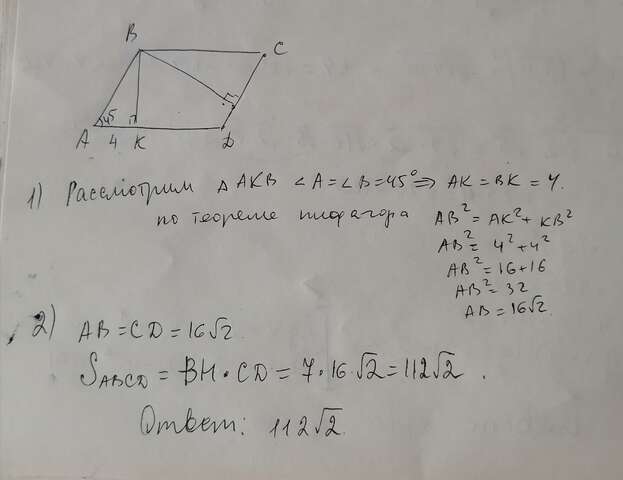 B
C
45
A 4 K D
1) Рассмотрим △ AKB ∠A=∠B=45° ⇒ AK=BK=4.
по теореме пифагора AB²=AK²+KB²
AB²=4²+4²
AB²=16+16
AB²=32
AB=16√2.
2) AB=CD=16√2
S ABCD = BH·CD=7·16√2=112√2.
Ответ: 112√2.